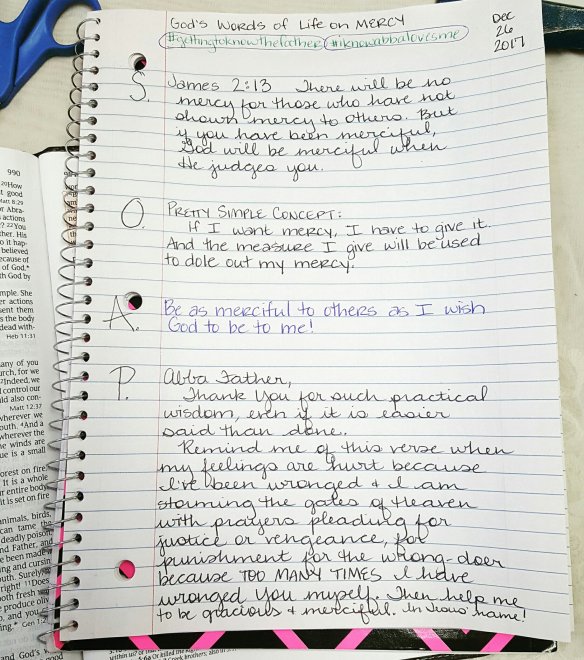 God's Words of Life on MERCY
#gettingtoknowthefather #iknowabbalovesme
Dec
26
2017
S.
James 2:13 There will be no
mercy for those who have not
shown mercy to others. But
if you have been merciful,
God will be merciful when
He judges you.
O.
PRETTY SIMPLE CONCEPT:
If I want mercy, I have to give it.
And the measure I give will be used
to dole out my mercy.
A.
Be as merciful to others as I wish
God to be to me!
P.
Abba Father,
Thank You for such practical
wisdom, even if it is easier
said than done.
Remind me of this verse when
my feelings are hurt because
I've been wronged & I am
storming the gates of Heaven
with prayers pleading for
justice or vengeance, for
punishment for the wrong-doer
because TOO MANY TIMES I have
wronged You myself. Then help me
to be gracious & merciful. In Jesus' name!
990
20How
t good
Matt 8:29
or Abra-
actions
? 22You
ther. His
o it hap-
believed
ecause of
of God.
th God by
mple. She
er actions
sent them
s the body
dead with-
Heb 11:31
any of you
urch, for we
2Indeed, we
l control our
ld also con-
Matt 12:37
wherever we
outh. 4And a
wherever the
e winds are
ue is a small
orest on fire.
It is a whole
r entire body
it is set on fire
animals, birds,
can tame the
deadly poison.
nd Father, and
e been made
ng and cursin
outh. Surely,
right! 11Does
oth fresh
produce oliv
o, and you
ing. Gen 1:2
and God's